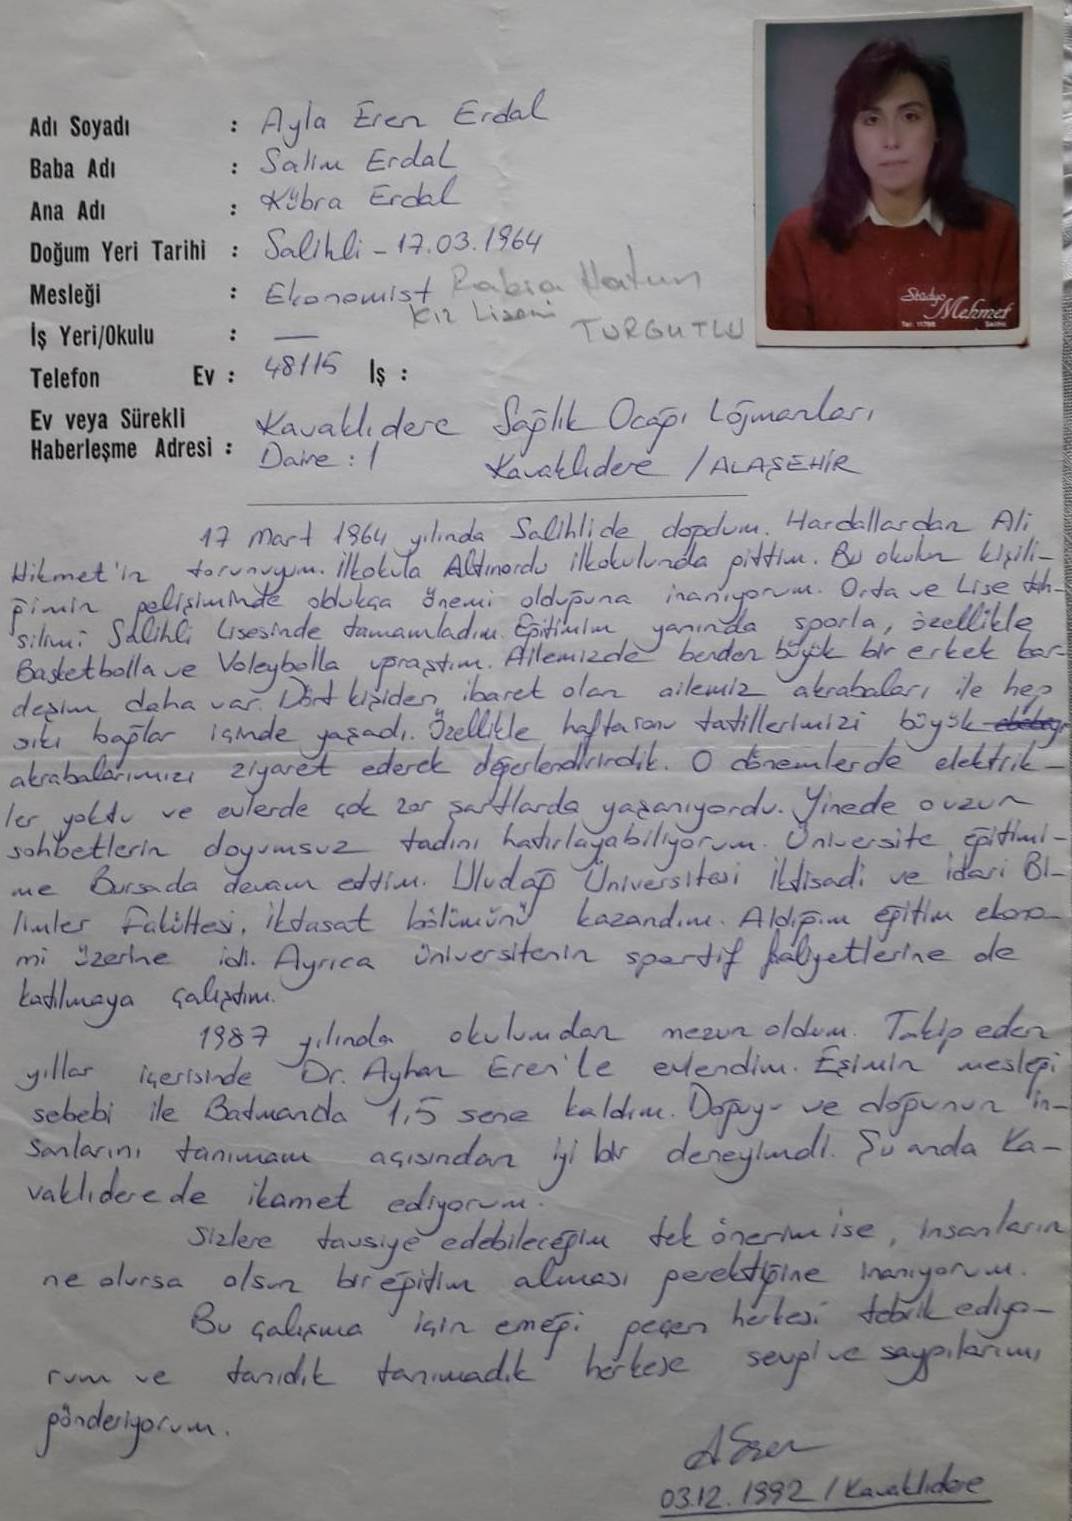 Adı Soyadı : Ayla Eren Erdal
Baba Adı : Salim Erdal
Ana Adı : Kübra Erdal
Doğum Yeri Tarihi : Salihli - 17.03.1964
Mesleği : Ekonomist Rabia Hatun
Kız Lisesi
TURGUTLU
İş Yeri/Okulu : —
Telefon Ev : 48115 İş :
Ev veya Sürekli
Haberleşme Adresi :
Kavaklıdere Sağlık Ocağı Lojmanları
Daire : 1 Kavaklıdere / ALAŞEHİR
Stüdyo
Mehmet
Tel: 11798 Salihli
17 Mart 1964 yılında Salihlide doğdum. Hardallardan Ali
Hikmet'in torunuyum. İlkokula Altınordu ilkokulunda gittim. Bu okulun kişili-
ğimin gelişiminde oldukça önemi olduğuna inanıyorum. Orta ve Lise tah-
silimi Salihli Lisesinde tamamladım. Eğitimim yanında sporla, özellikle
Basketbolla ve Voleybolla uğraştım. Ailemizde benden büyük bir erkek kar-
deşim daha var. Dört kişiden ibaret olan ailemiz akrabaları ile hep
sıkı bağlar içinde yaşadı. Özellikle haftasonu tatillerimizi büyük
akrabalarımızı ziyaret ederek değerlendirirdik. O dönemlerde elektrik-
ler yoktu ve evlerde çok zor şartlarda yaşanıyordu. Yinede o uzun
sohbetlerin doyumsuz tadını hatırlayabiliyorum. Üniversite eğitimi-
me Bursada devam ettim. Uludağ Üniversitesi İktisadi ve İdari Bi-
limler Fakültesi, İktasat bölümünü kazandım. Aldığım eğitim ekono-
mi üzerine idi. Ayrıca üniversitenin sportif faliyetlerine de
katılmaya çalıştım.
1987 yılında okulumdan mezun oldum. Takip eden
yıllar içerisinde Dr. Ayhan Eren'le evlendim. Eşimin mesleği
sebebi ile Batmanda 1,5 sene kaldım. Doğuyu ve doğunun in-
sanlarını tanımam açısından iyi bir deneyimdi. Şu anda Ka-
vaklıderede ikamet ediyorum.
Sizlere tavsiye edebileceğim tek önerim ise, insanların
ne olursa olsun bir eğitim alması gerektiğine inanıyorum.
Bu çalışma için emeği geçen herkesi tebrik ediyo-
rum ve tanıdık tanımadık herkese sevgi ve saygılarımı
gönderiyorum.
AEren
03.12.1992 / Kavaklıdere